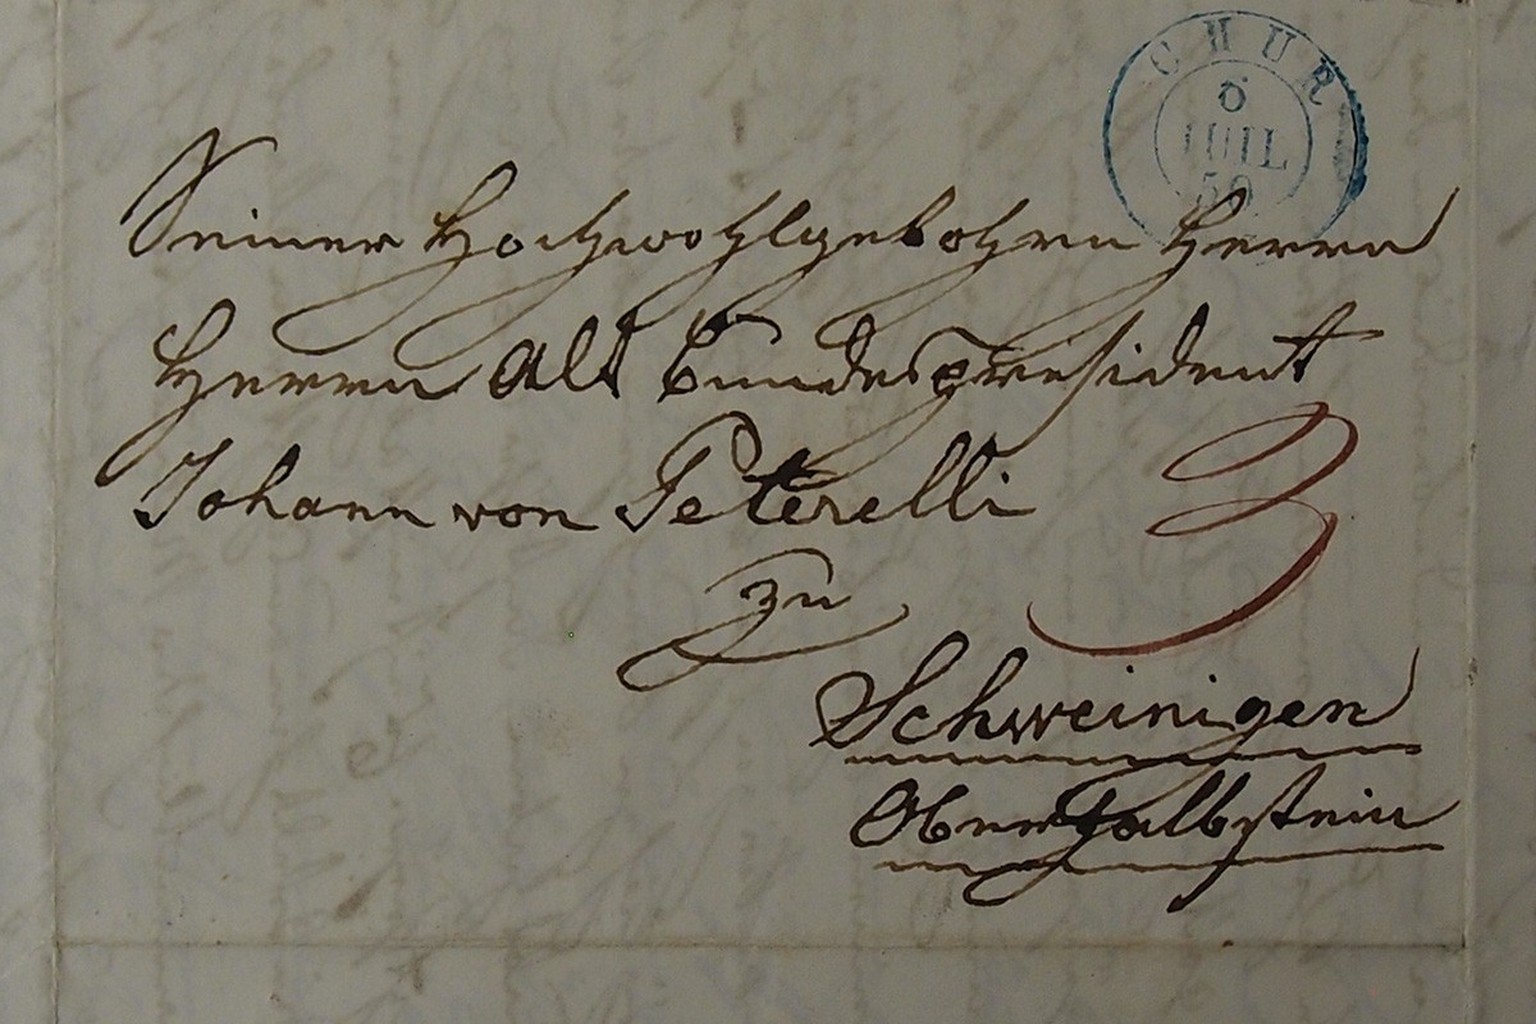 CHUR
6
JUIL
50
Seiner Hochwohlgebohren Herrn
Herrn Alt Bundespresident
Johann von Peterelli
3
zu
Schweinigen
Oberhalbstein